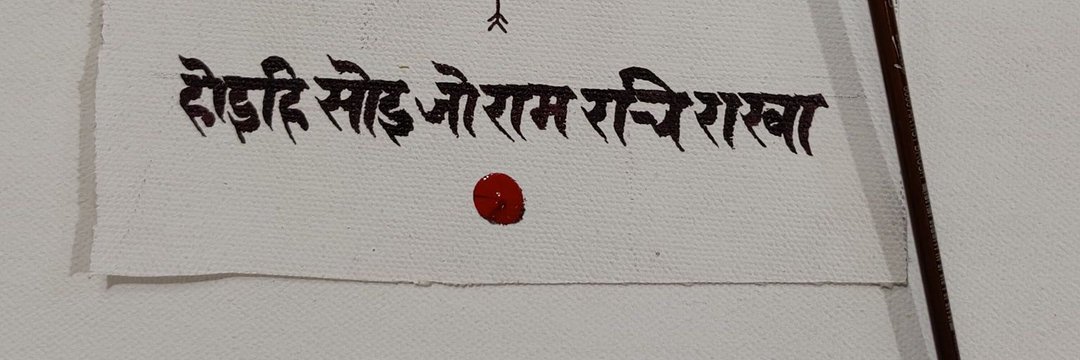 होइहि सोइ जो राम रचि राखा